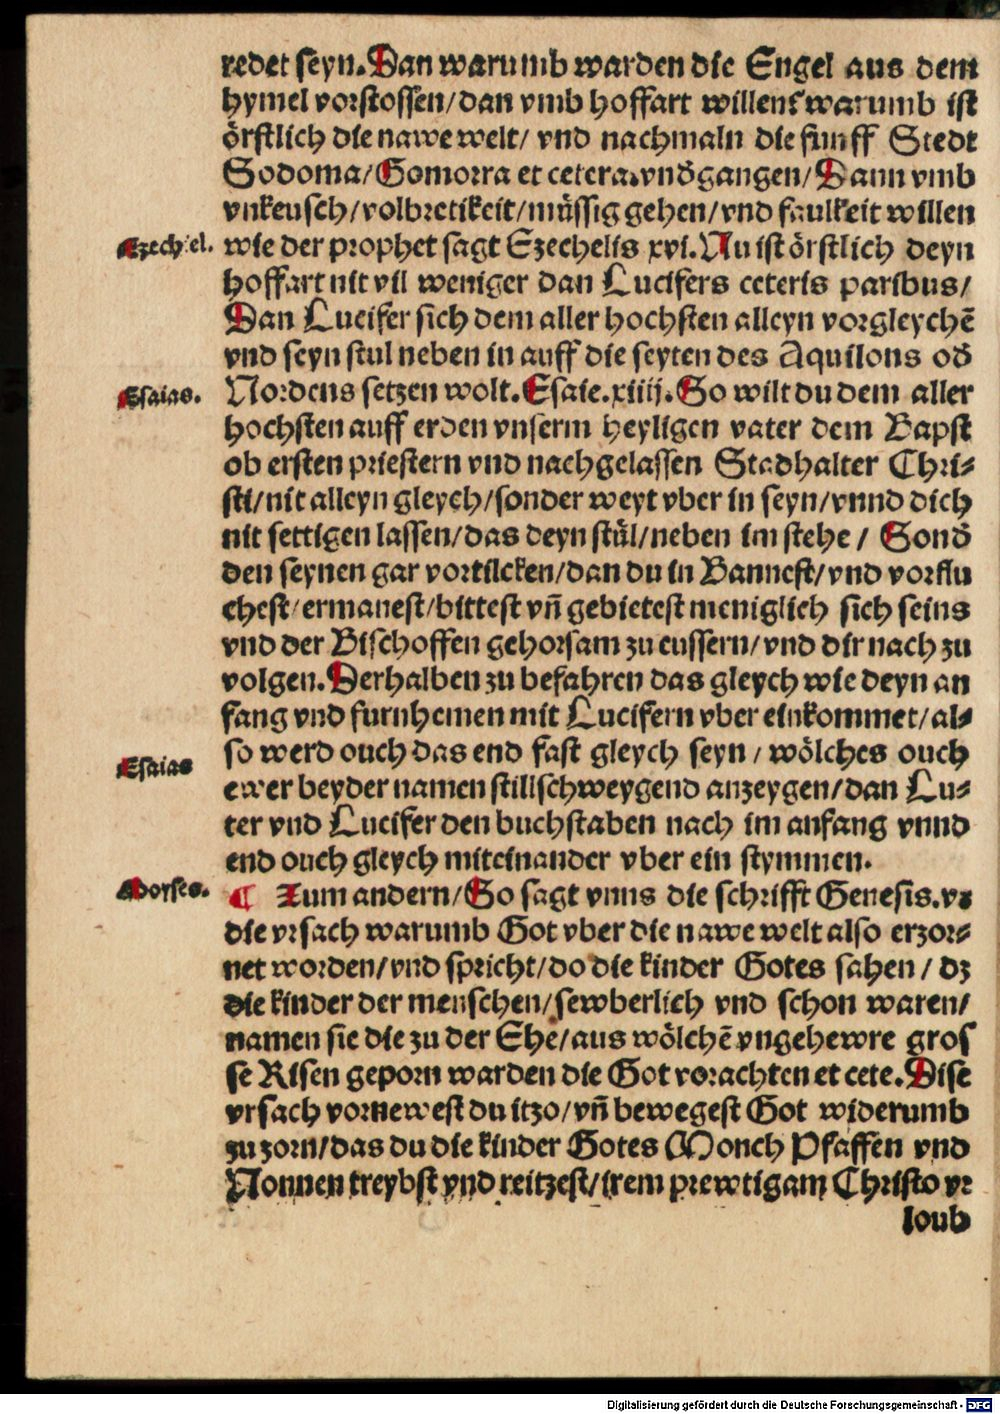 redet seyn. Dan warumb warden die Engel aus dem
hymel vorstossen/dan vmb hoffart willen? warumb ist
örstlich die nawe welt/ vnd nachmaln die funff Stedt
Sodoma/Gomorra et cetera. vndgangen/Dann vmb
vnkeusch/volbretikeit/müssig gehen/vnd faulkeit willen
Ezechiel. wie der prophet sagt Ezechelis xvi. Nu ist örstlich deyn
hoffart nit vil weniger dan Lucifers ceteris paribus/
Dan Lucifer sich dem aller hochsten alleyn vorgleychē
vnd seyn stul neben in auff die seyten des Aquilons od̄
Esaias. Nordens setzen wolt. Esaie. xiiij. So wilt du dem aller
hochsten auff erden vnserm heyligen vater dem Bapst
ob ersten priestern vnd nachgelassen Stadhalter Chri-
sti/nit alleyn gleych/sonder weyt vber in seyn/vnnd dich
nit settigen lassen/das deyn stůl/neben im stehe/ Sond̄
den seynen gar vortilcken/dan du in Bannest/vnd vorflu
chest/ermanest/bittest vn̄ gebietest meniglich sich seins
vnd der Bischoffen gehorsam zu eussern/vnd dir nach zu
volgen. Derhalben zu befahren das gleych wie deyn an
fang vnd furnhemen mit Lucifern vber einkommet/al-
so werd ouch das end fast gleych seyn/ wölches ouch
Esaias ewer beyder namen stillschweygend anzeygen/dan Lu-
ter vnd Lucifer den buchstaben nach im anfang vnnd
end ouch gleych miteinander vber ein stymmen.
Moyses. ¶ Zum andern/So sagt vnns die schrifft Genesis. vi
die vrsach warumb Got vber die nawe welt also erzor-
net worden/vnd spricht/do die kinder Gotes sahen/ dz
die kinder der menschen/sewberlich vnd schon waren/
namen sie die zu der Ehe/aus wölchē vngehewre gros
se Risen geporn warden die Got vorachten et cete. Dise
vrsach vornewest du itzo/vn̄ bewegest Got widerumb
zu zorn/das du die kinder Gotes Monch Pfaffen vnd
Nonnen treybst vnd reitzest/irem prewtigam Christo vr
loub
Digitalisierung gefördert durch die Deutsche Forschungsgemeinschaft - DFG